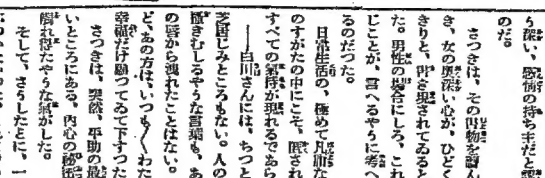 う深い、感情の持ち主だと
のだ。
さつきは、その
き、女の奥深い心が、ひどく
きりと、
た。男性の場合にしろ、これ
じことが、言へるやうに考へ
るのだつた。
日常生活の、極めて凡庸な
のすがたの中にこそ、隠され
すべての気持が現れるであら
――白川さんには、ちつと
芝居じみたところもない。人の
きむしるやうな言葉も、あ
の唇から洩れたことはない。
ど、あの方は、いつも〱わた
幸福だけ願つてゐて下すつた
さつきは、突然、平助の最
いところにある、内心の秘密
れ得たやうな気がした。
そして、さうしたとに、一